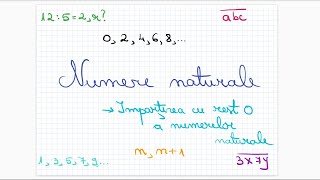 12:5=2, r?
abc
0, 2, 4, 6, 8, ...
Numere naturale
→ Împărțirea cu rest 0
a numerelor
naturale
1, 3, 5, 7, 9...
n, n+1
3x7y